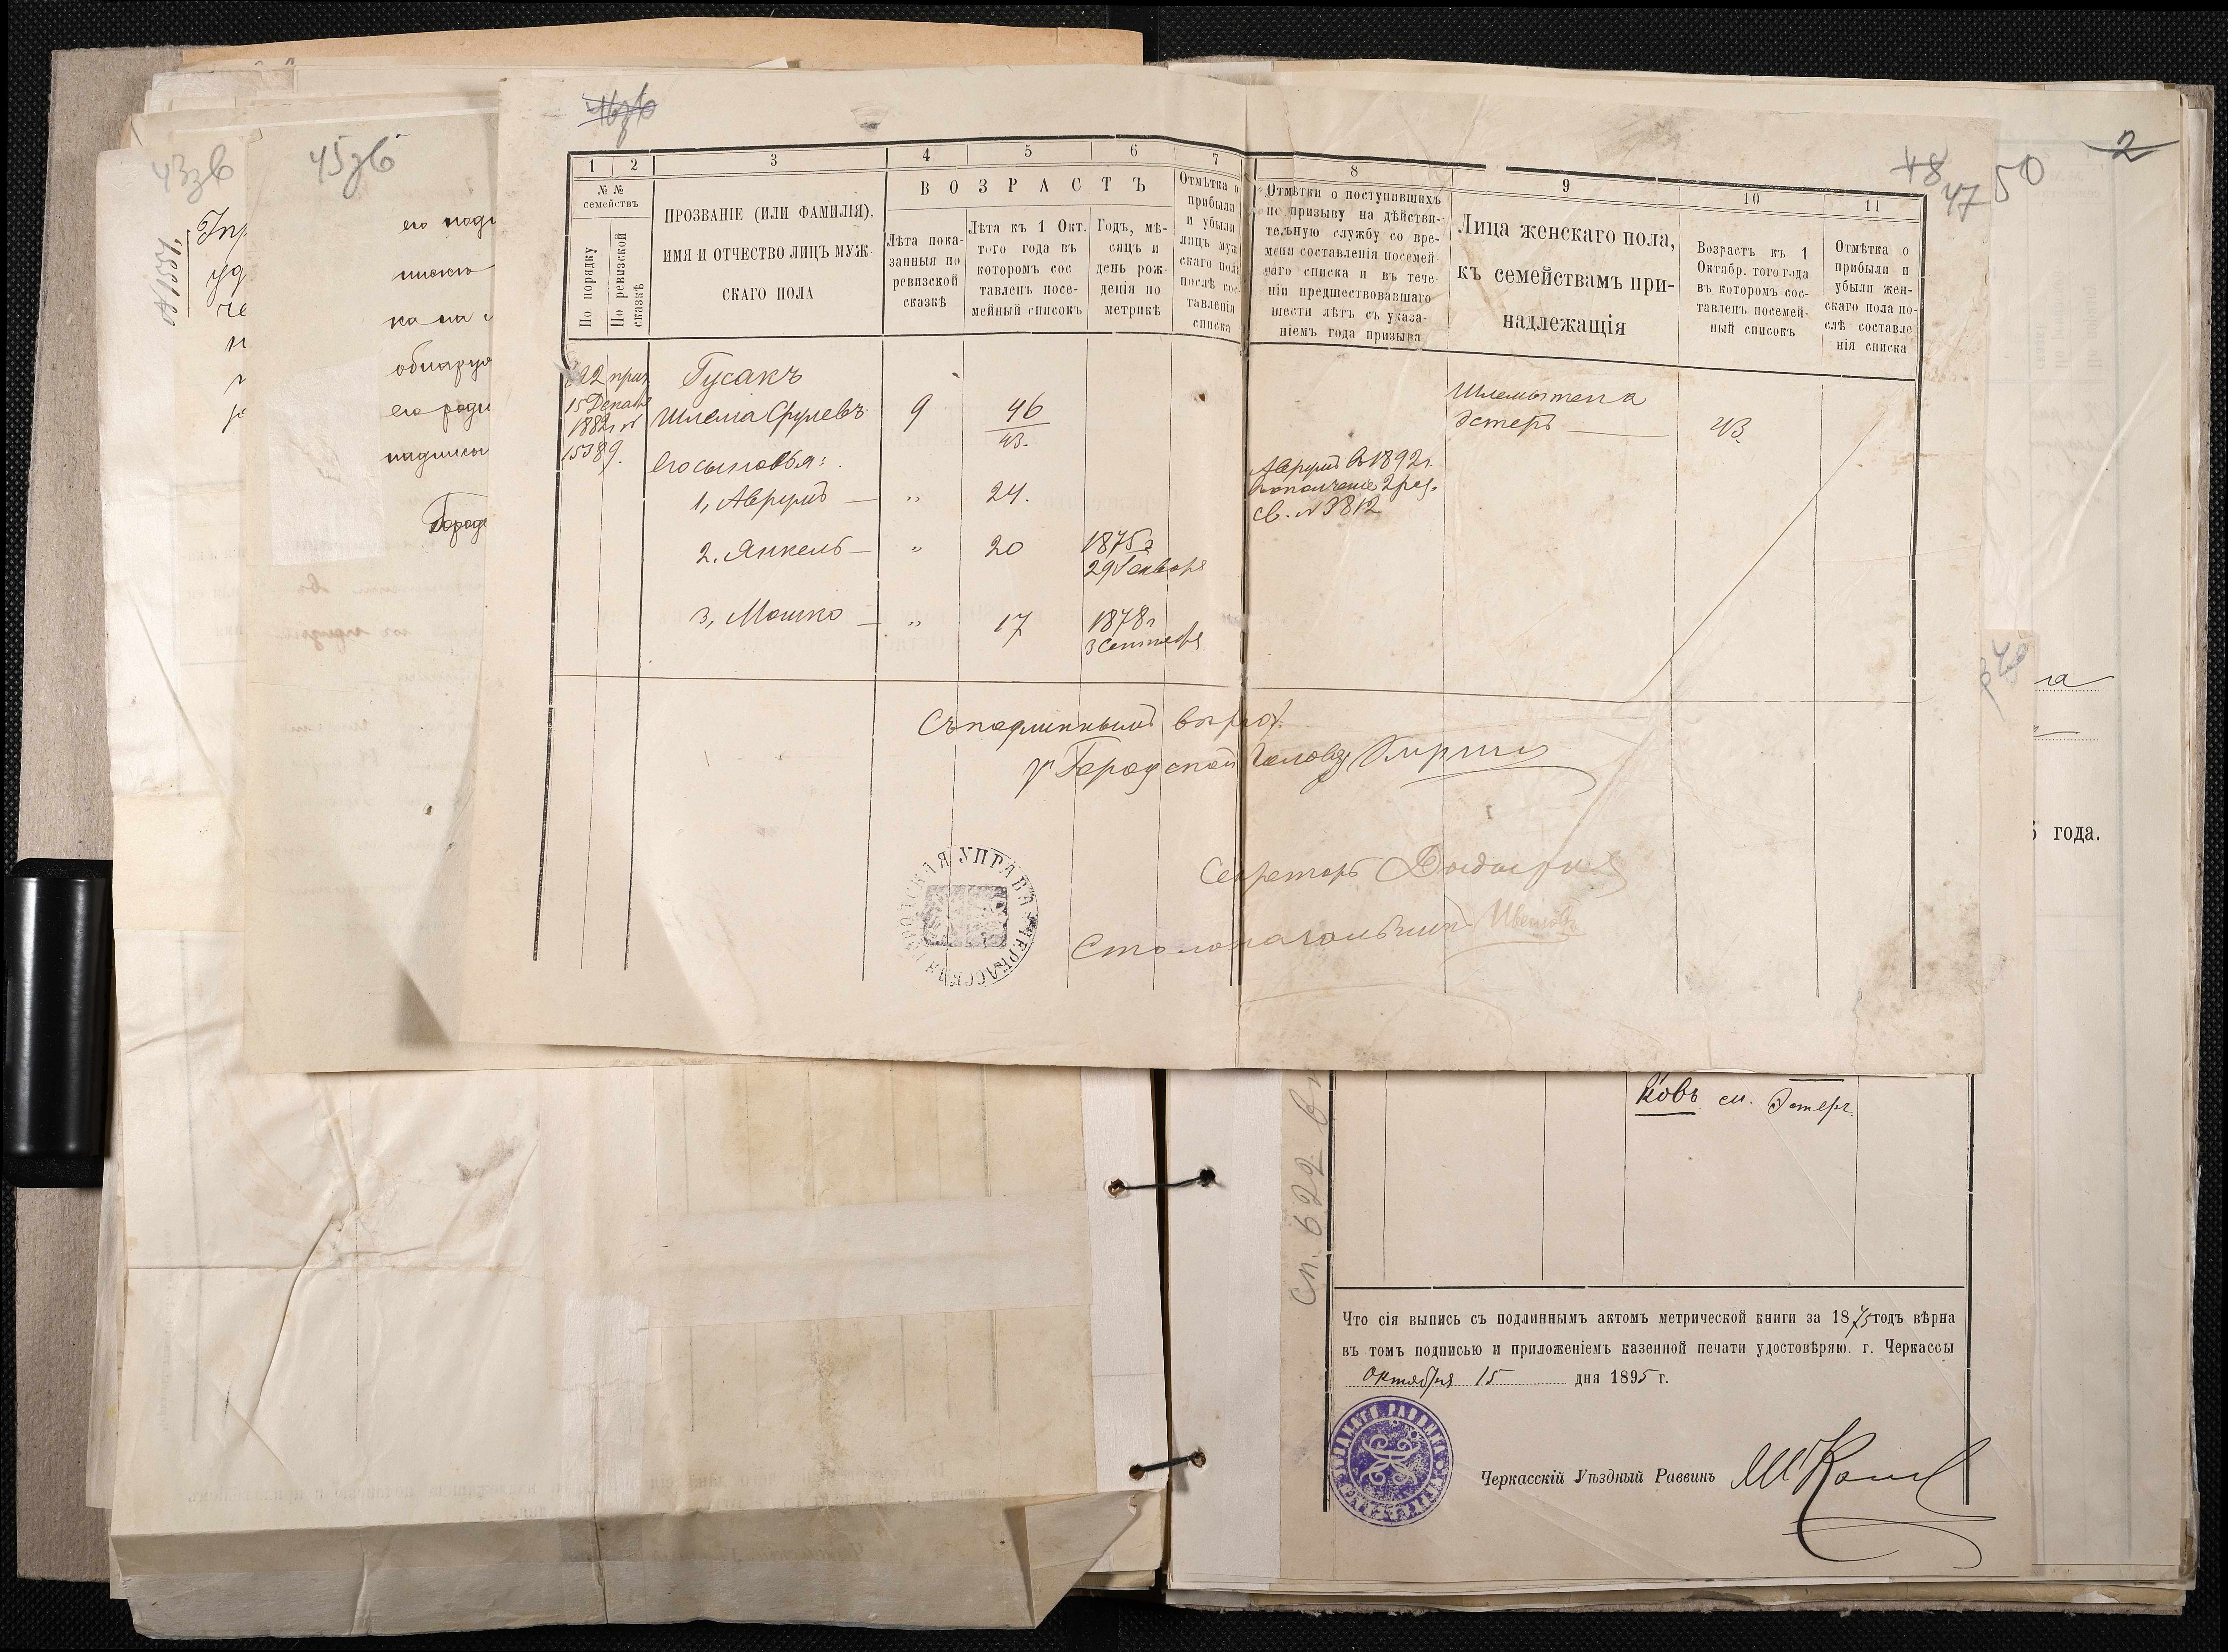 43 зв
45 зв
48
47
50
2
его
ка на
его роди
1 2 3 4 5 6 7 8 9 10 11
№ №
семействъ
По порядку
По ревизской
сказкѣ
ПРОЗВАНІЕ (ИЛИ ФАМИЛІЯ),
ИМЯ И ОТЧЕСТВО ЛИЦЪ МУЖ-
СКАГО ПОЛА
ВОЗРАСТЪ
Лѣта пока-
занныя по
ревизской
сказкѣ
Лѣта къ 1 Окт.
того года въ
которомъ сос
тавленъ посе-
мейный списокъ
Годъ, мѣ-
сяцъ и
день рож-
денія по
метрикѣ
Отмѣтка о
прибыли
и убыли
лицъ муж
скаго пола
послѣ сос-
тавленія
списка
Отмѣтки о поступившихъ
по призыву на дѣйстви-
тельную службу со вре-
мени составленія посемей
наго списка и въ тече-
ніи предшествовавшаго
шести лѣтъ съ указа-
ніемъ года призыва
Лица женскаго пола,
къ семействамъ при-
надлежащія
Возрастъ къ 1
Октябр. того года
въ которомъ сос-
тавленъ посемей-
ный списокъ
Отмѣтка о
прибыли и
убыли жен-
скаго пола по-
слѣ составле
нія списка
Гусакъ
15 Декабр
1882 г №
15389.
Шлема Срулевъ 9 46
43.
Шлемы жена
Эстеръ 43
Его сыновья:
1, Аврумъ — „ 24.
Аврумъ въ 1892 г.
ополченіе 2 раз.
св. № 3812
2. Янкель — „ 20 1875 г
29 Генваря
3, Мошко — „ 17 1878 г
3 Сентября
Съ подлиннымъ вѣрно:
Городской Голова
Секретарь
Столоначальникъ
ЧЕРКАССКАЯ ГОРОДСКАЯ УПРАВА
года.
ковъ см. Эстеръ.
Сп. 622
Что сія выпись съ подлиннымъ актомъ метрической книги за 1875 годъ вѣрна
въ томъ подписью и приложеніемъ казенной печати удостовѣряю. г. Черкассы
Октября 15 дня 1895 г.
Черкасскій Уѣздный Раввинъ